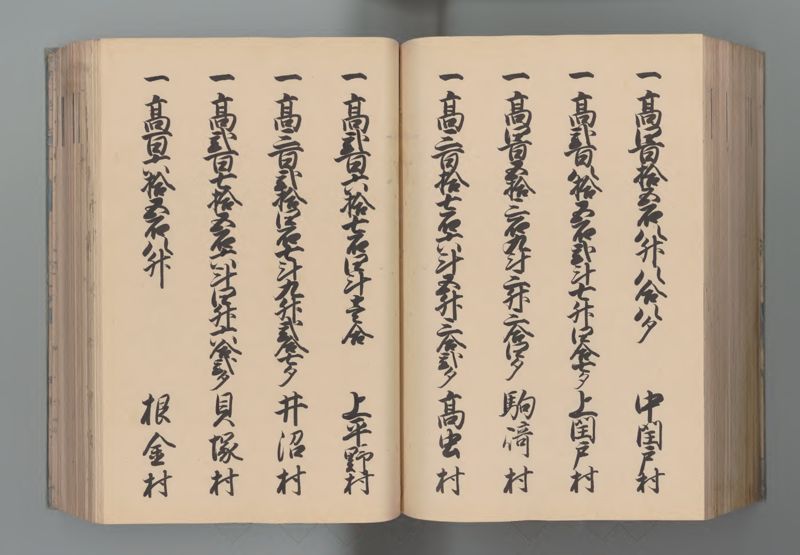 一高四百拾五石八升八合八夕　中閏戸村
一高弐百八拾五石弐斗七升四合七夕　上閏戸村
一高四百五拾三石九斗三升三合四夕　駒崎村
一高三百拾七石六斗五升三合弐夕　高虫村
一高弐百六拾七石四斗壱合　上平野村
一高三百弐拾四石七斗九升弐合七夕　井沼村
一高弐百七拾五石六斗四升六合弐夕　貝塚村
一高百六拾五石八升　根金村